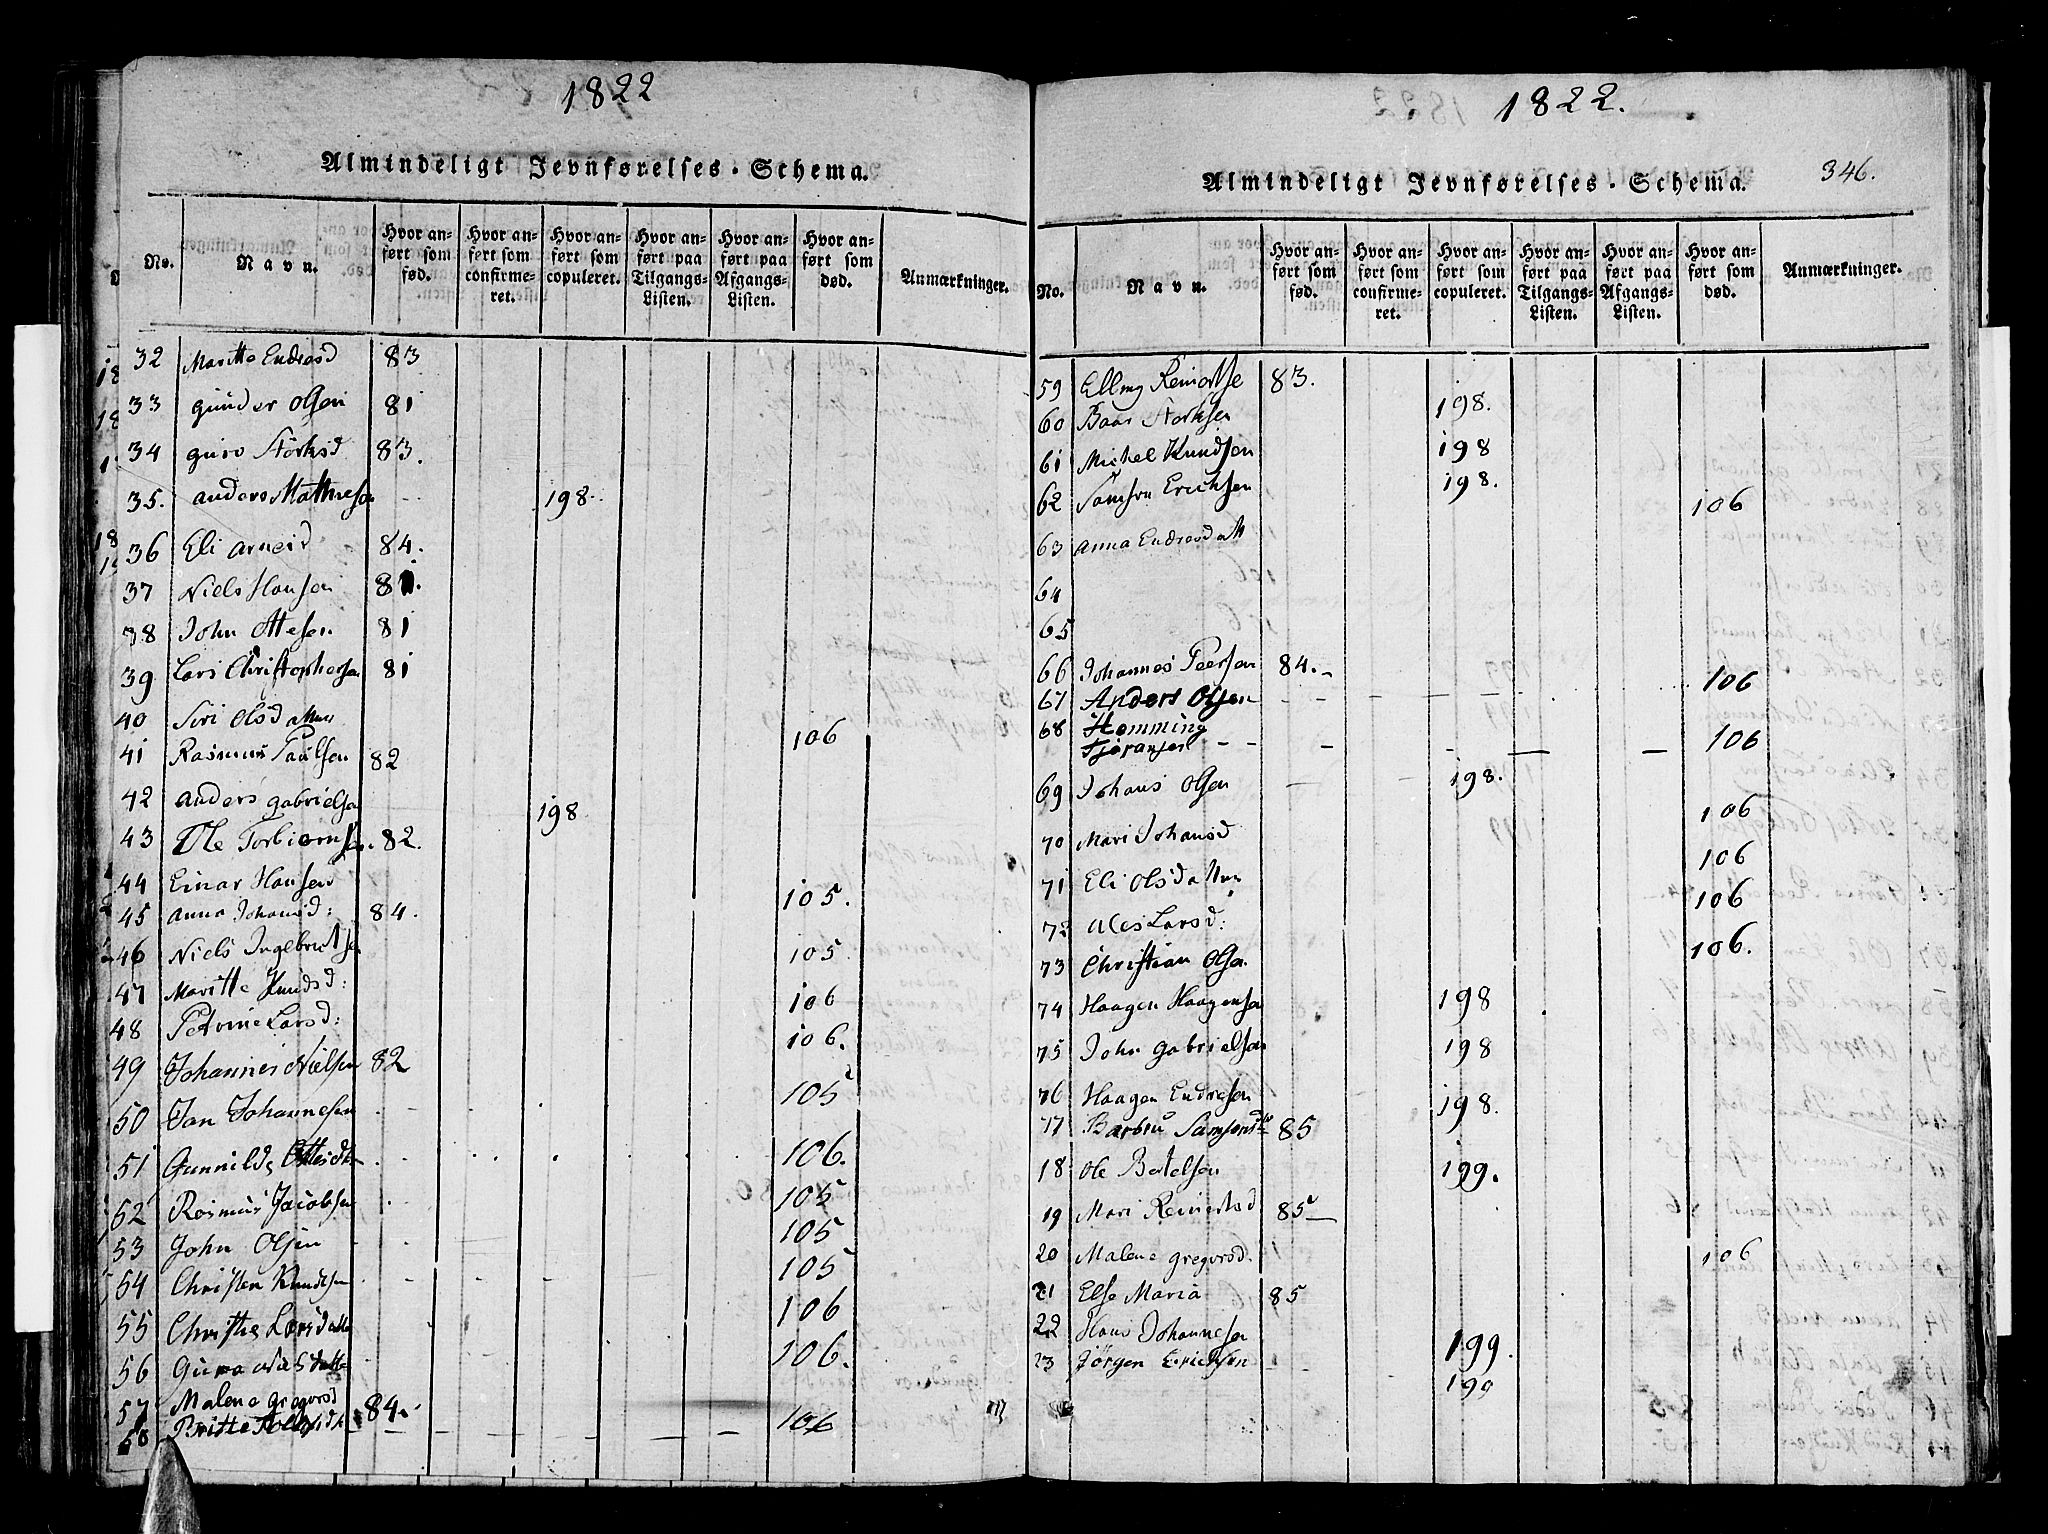 1822
Almindeligt Jevnførelses-Schema.
No. Navn. Hvor anført som fød. Hvor anført som confirmeret. Hvor anført som copuleret. Hvor anført paa Tilgangs-Listen. Hvor anført paa Afgangs-Listen. Hvor anført som død. Anmærkninger.
32 Maritte Endresd 83
33 gunder Olsen 81
34 guro Störksd 83.
35. anders Mathiesen 198.
36 Eli arnesd 84.
37 Niels Hansen 81.
38 John Ottesen 81
39 Lars Christophersen 81
40 Siri Olsdatter 106
41 Rasmus Paulsen 82
42 anders gabrielsen 198
43 Ole Torbiörnsen 82.
44 Einar Hansen 105.
45 anna Johansd: 84.
46 Niels Ingebretsen 105
47 Maritte Knudsd: 106
48 Petrine Larsd: 106.
49 Johannes Nielsen 82
50 Jan Johannesen 105
51 Gunnild Ottesdtr 106.
52 Rasmus Jacobsen 105
53 John Olsen 105
54 Christen Knudsen 105
55 Christie Larsdatter 106
56 Guro Nielsdatter 106.
57 Malene gregorsd 84.
58 Britte Tollefsdtr 106
1822.
346.
Almindeligt Jevnførelses-Schema.
No. Navn. Hvor anført som fød. Hvor anført som confirmeret. Hvor anført som copuleret. Hvor anført paa Tilgangs-Listen. Hvor anført paa Afgangs-Listen. Hvor anført som død. Anmærkninger.
59 Elling Reinertse 83.
60 Baar Störksen 198.
61 Michel Knudsen 198
62 Samson Erichsen 198.
63 anna Endresdatt 106
64
65
66 Johannes Peersen 84.
67 Anders Olsen 106
68 Hemming
Tjøransen 106
69 Johans Olsen 198.
70 Mari Johansd 106
71 Eli Olsdatter 106
72 Ales Larsd: 106
73 Christian Olsen 106.
74 Haagen Haagensen 198
75 John gabrielsen 198
76 Haagen Endresen 198.
77 Barbru Samsonsdtr 85
18 Ole Bertelsen 199.
19 Mari Reinertsd 85
20 Malene gregorsd. 106
21 Else Maria 85
22 Hans Johannesen 199.
23 Jörgen Erichsen 199